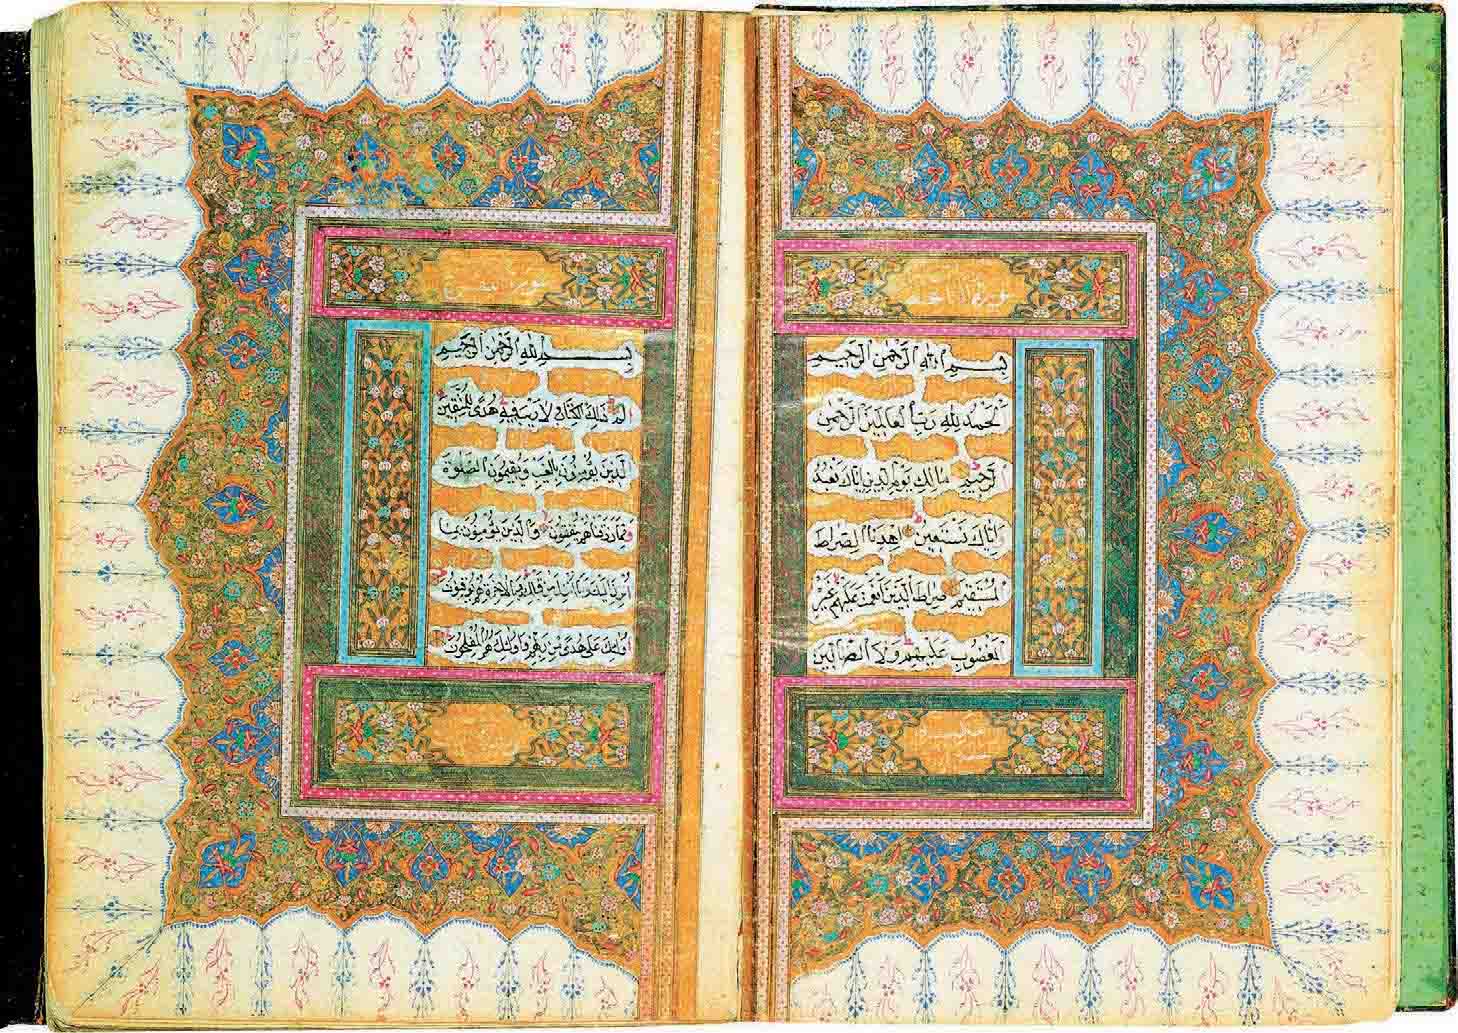 سورة الفاتحة
بِسْمِ اللهِ الرَّحْمٰنِ الرَّحِيمِ
اَلْحَمْدُ لِلّٰهِ رَبِّ الْعَالَمِينَ الرَّحْمٰنِ
الرَّحِيمِ مَالِكِ يَوْمِ الدِّينِ اِيَّاكَ نَعْبُدُ
وَاِيَّاكَ نَسْتَعِينُ اِهْدِنَا الصِّرَاطَ
الْمُسْتَقِيمَ صِرَاطَ الَّذِينَ اَنْعَمْتَ عَلَيْهِمْ غَيْرِ
الْمَغْضُوبِ عَلَيْهِمْ وَلَا الضَّالِّينَ
مكية
سورة البقرة
بِسْمِ اللهِ الرَّحْمٰنِ الرَّحِيمِ
الم ذٰلِكَ الْكِتَابُ لَا رَيْبَ فِيهِ هُدًى لِلْمُتَّقِينَ
الَّذِينَ يُؤْمِنُونَ بِالْغَيْبِ وَيُقِيمُونَ الصَّلٰوةَ
وَمِمَّا رَزَقْنَاهُمْ يُنْفِقُونَ وَالَّذِينَ يُؤْمِنُونَ بِمَا
اُنْزِلَ اِلَيْكَ وَمَا اُنْزِلَ مِنْ قَبْلِكَ وَبِالْاٰخِرَةِ هُمْ يُوقِنُونَ
اُولٰئِكَ عَلٰى هُدًى مِنْ رَبِّهِمْ وَاُولٰئِكَ هُمُ الْمُفْلِحُونَ